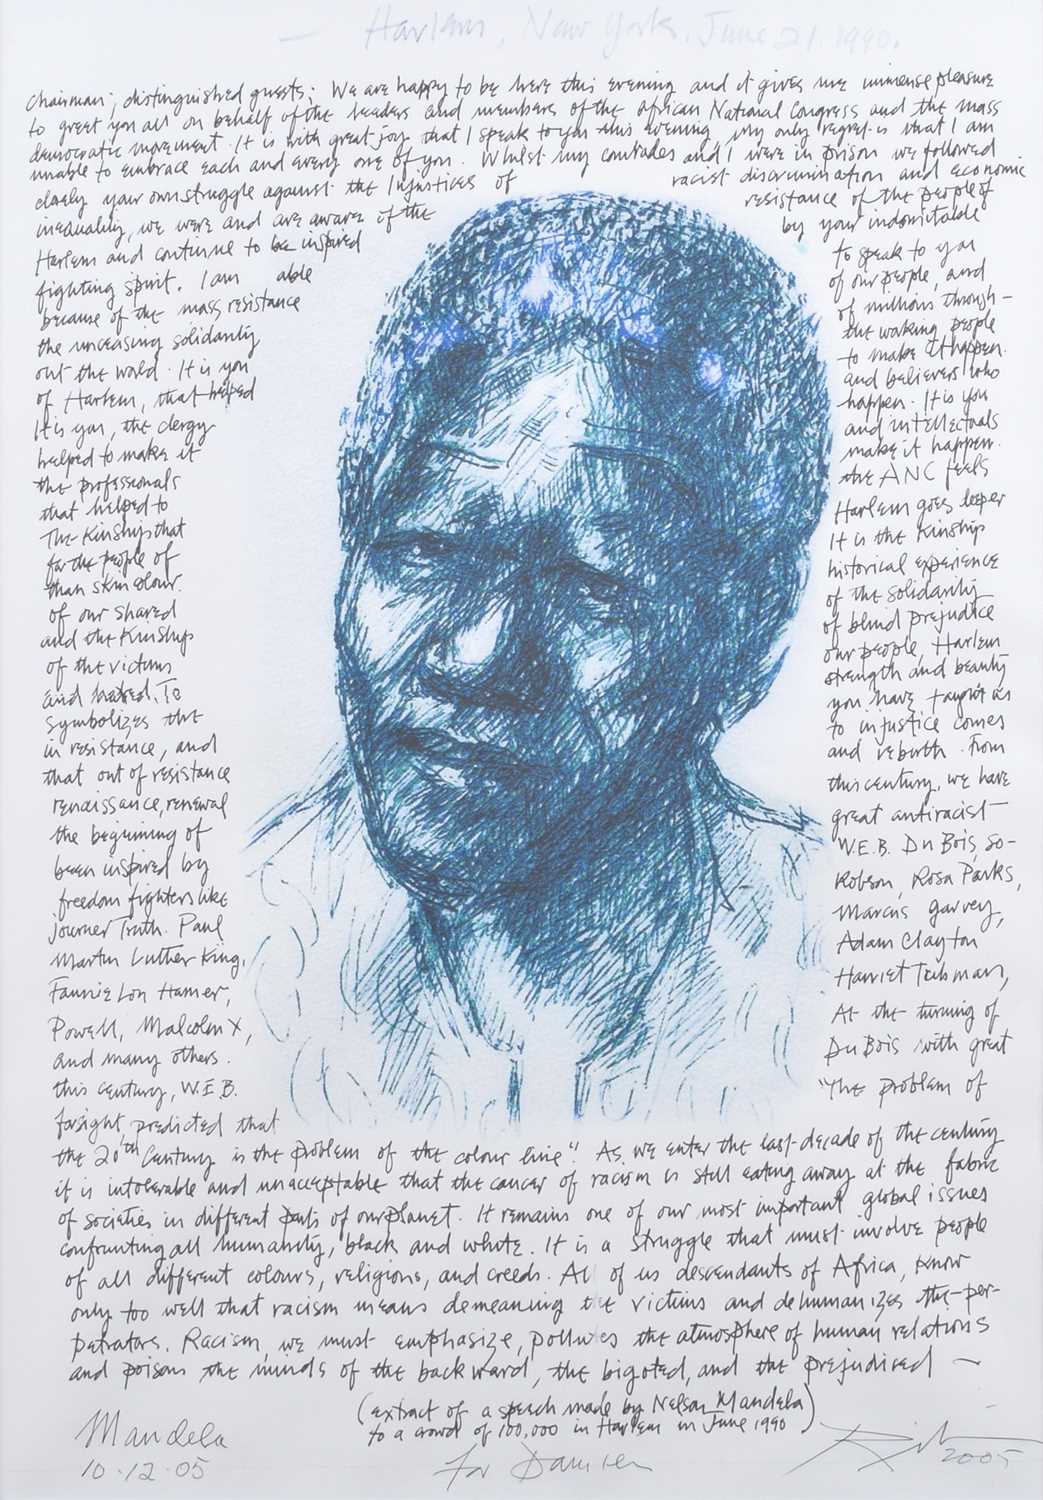 — Harlem, New York, June 21. 1990.
Chairman; distinguished guests; We are happy to be here this evening and it gives me immense pleasure
to greet you all on behalf of the leaders and members of the African National Congress and the mass
democratic movement. It is with great joy that I speak to you this evening. My only regret is that I am
unable to embrace each and every one of you. Whilst my comrades and I were in prison we followed
closely your own struggle against the Injustices of racist discrimination and economic
inequality, we were and are aware of the resistance of the people of
Harlem and continue to be inspired by your indomitable
fighting spirit. I am able to speak to you
because of the mass resistance of our people, and
the unceasing solidarity of millions through-
out the world. It is you the working people
of Harlem, that helped to make it happen.
It is you, the clergy and believers who
helped to make it happen. It is you
the professionals and intellectuals
that helped to make it happen.
The Kinship that the ANC feels
for the people of Harlem goes deeper
than skin colour. It is the Kinship
of our shared historical experience
and the Kinship of the solidarity
of the victims of blind prejudice
and hatred. To our people, Harlem
symbolizes the strength and beauty
in resistance, and you have taught us
that out of resistance to injustice comes
renaissance, renewal and rebirth. From
the beginning of this century, we have
been inspired by great antiracist
freedom fighters like W.E.B. Du Bois, So-
journer Truth. Paul Robson, Rosa Parks,
Martin Luther King, Marcus Garvey,
Fannie Lou Hamer, Adam Clayton
Powell, Malcolm X, Harriet Tubman,
and many others. At the turning of
this century, W.E.B. Du Bois with great
forsight predicted that "The problem of
the 20th Century is the problem of the colour line". As we enter the last decade of the century
it is intolerable and unacceptable that the cancer of racism is still eating away at the fabric
of societies in different parts of our planet. It remains one of our most important global issues
confronting all humanity, black and white. It is a struggle that must involve people
of all different colours, religions, and creeds. All of us descendants of Africa, know
only too well that racism means demeaning the victims and dehumanizes the per-
petrators. Racism, we must emphasize, pollutes the atmosphere of human relations
and poisons the minds of the backward, the bigoted, and the prejudised —
(extract of a speach made by Nelson Mandela)
to a crowd of 100,000 in Harlem in June 1990
Mandela
10.12.05
for Damien
2005